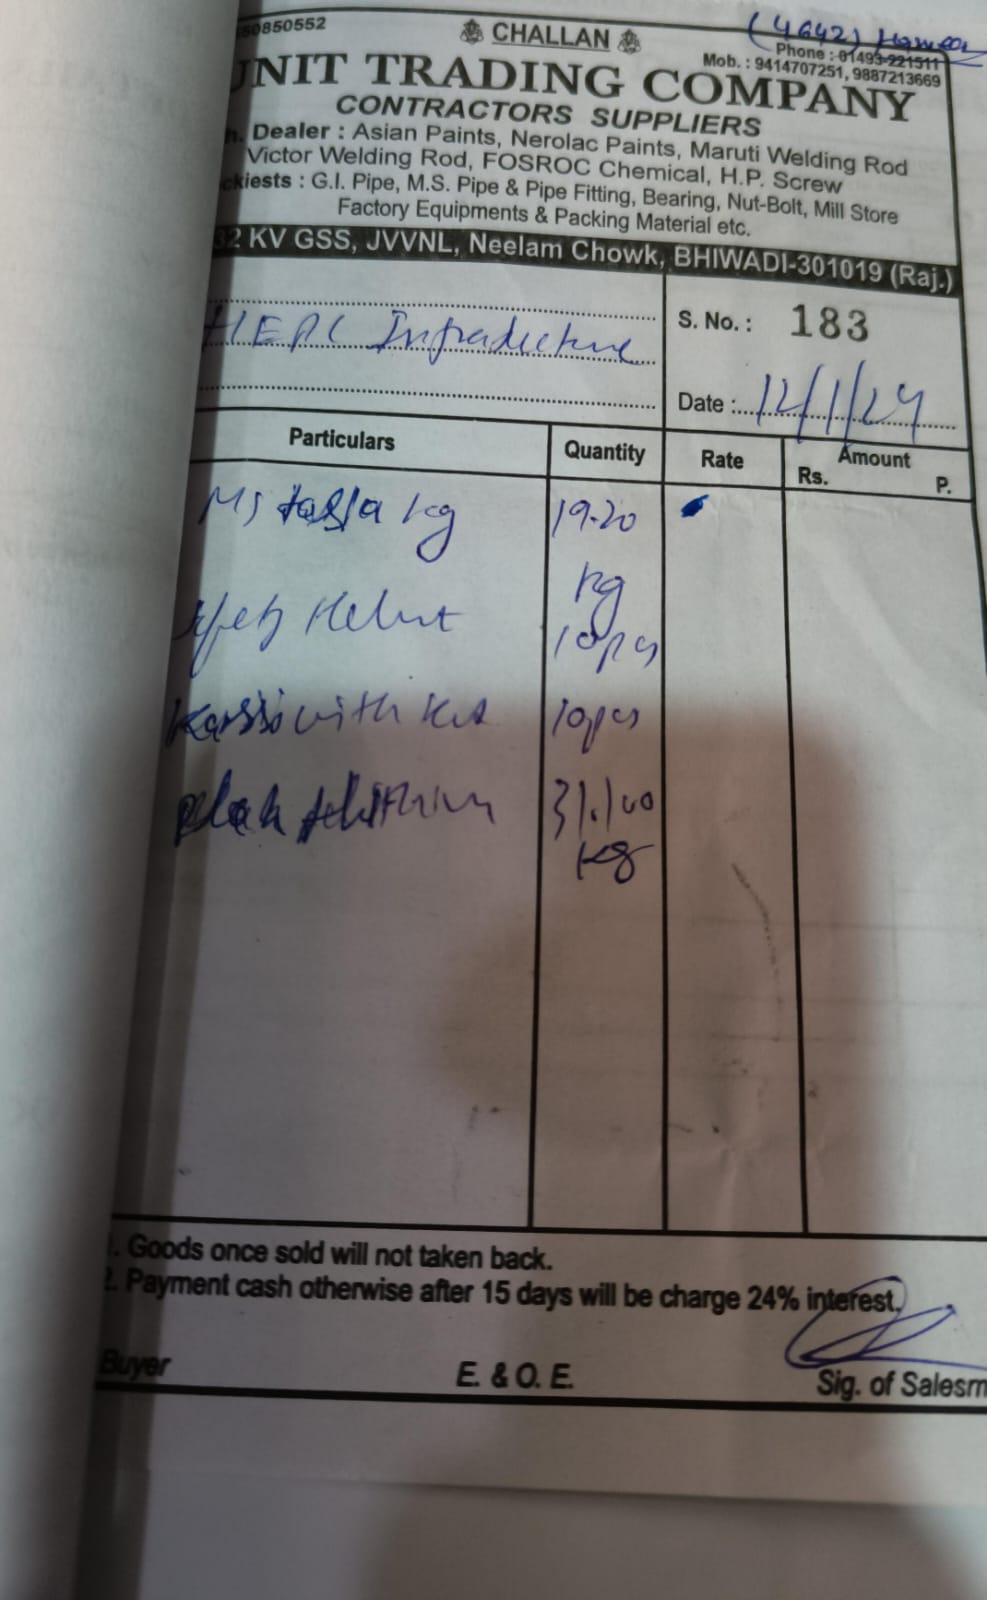 50850552
CHALLAN
(4642)
Phone : 01493-221511
Mob. : 9414707251, 9887213669
UNIT TRADING COMPANY
CONTRACTORS SUPPLIERS
h. Dealer : Asian Paints, Nerolac Paints, Maruti Welding Rod
Victor Welding Rod, FOSROC Chemical, H.P. Screw
ckiests : G.I. Pipe, M.S. Pipe & Pipe Fitting, Bearing, Nut-Bolt, Mill Store
Factory Equipments & Packing Material etc.
32 KV GSS, JVVNL, Neelam Chowk, BHIWADI-301019 (Raj.)
S. No. : 183
Date : 12/1/24
Particulars Quantity Rate Amount
Rs. P.
Ms kg 19.20
kg
10pcs
with 10pcs
31.100
kg
1. Goods once sold will not taken back.
2. Payment cash otherwise after 15 days will be charge 24% interest.
Buyer E. & O. E. Sig. of Salesm